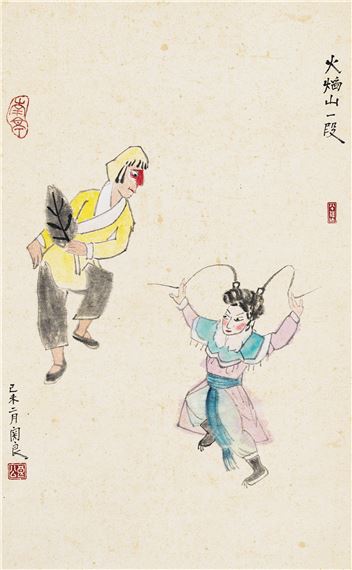 火焰山一段
己未二月関良